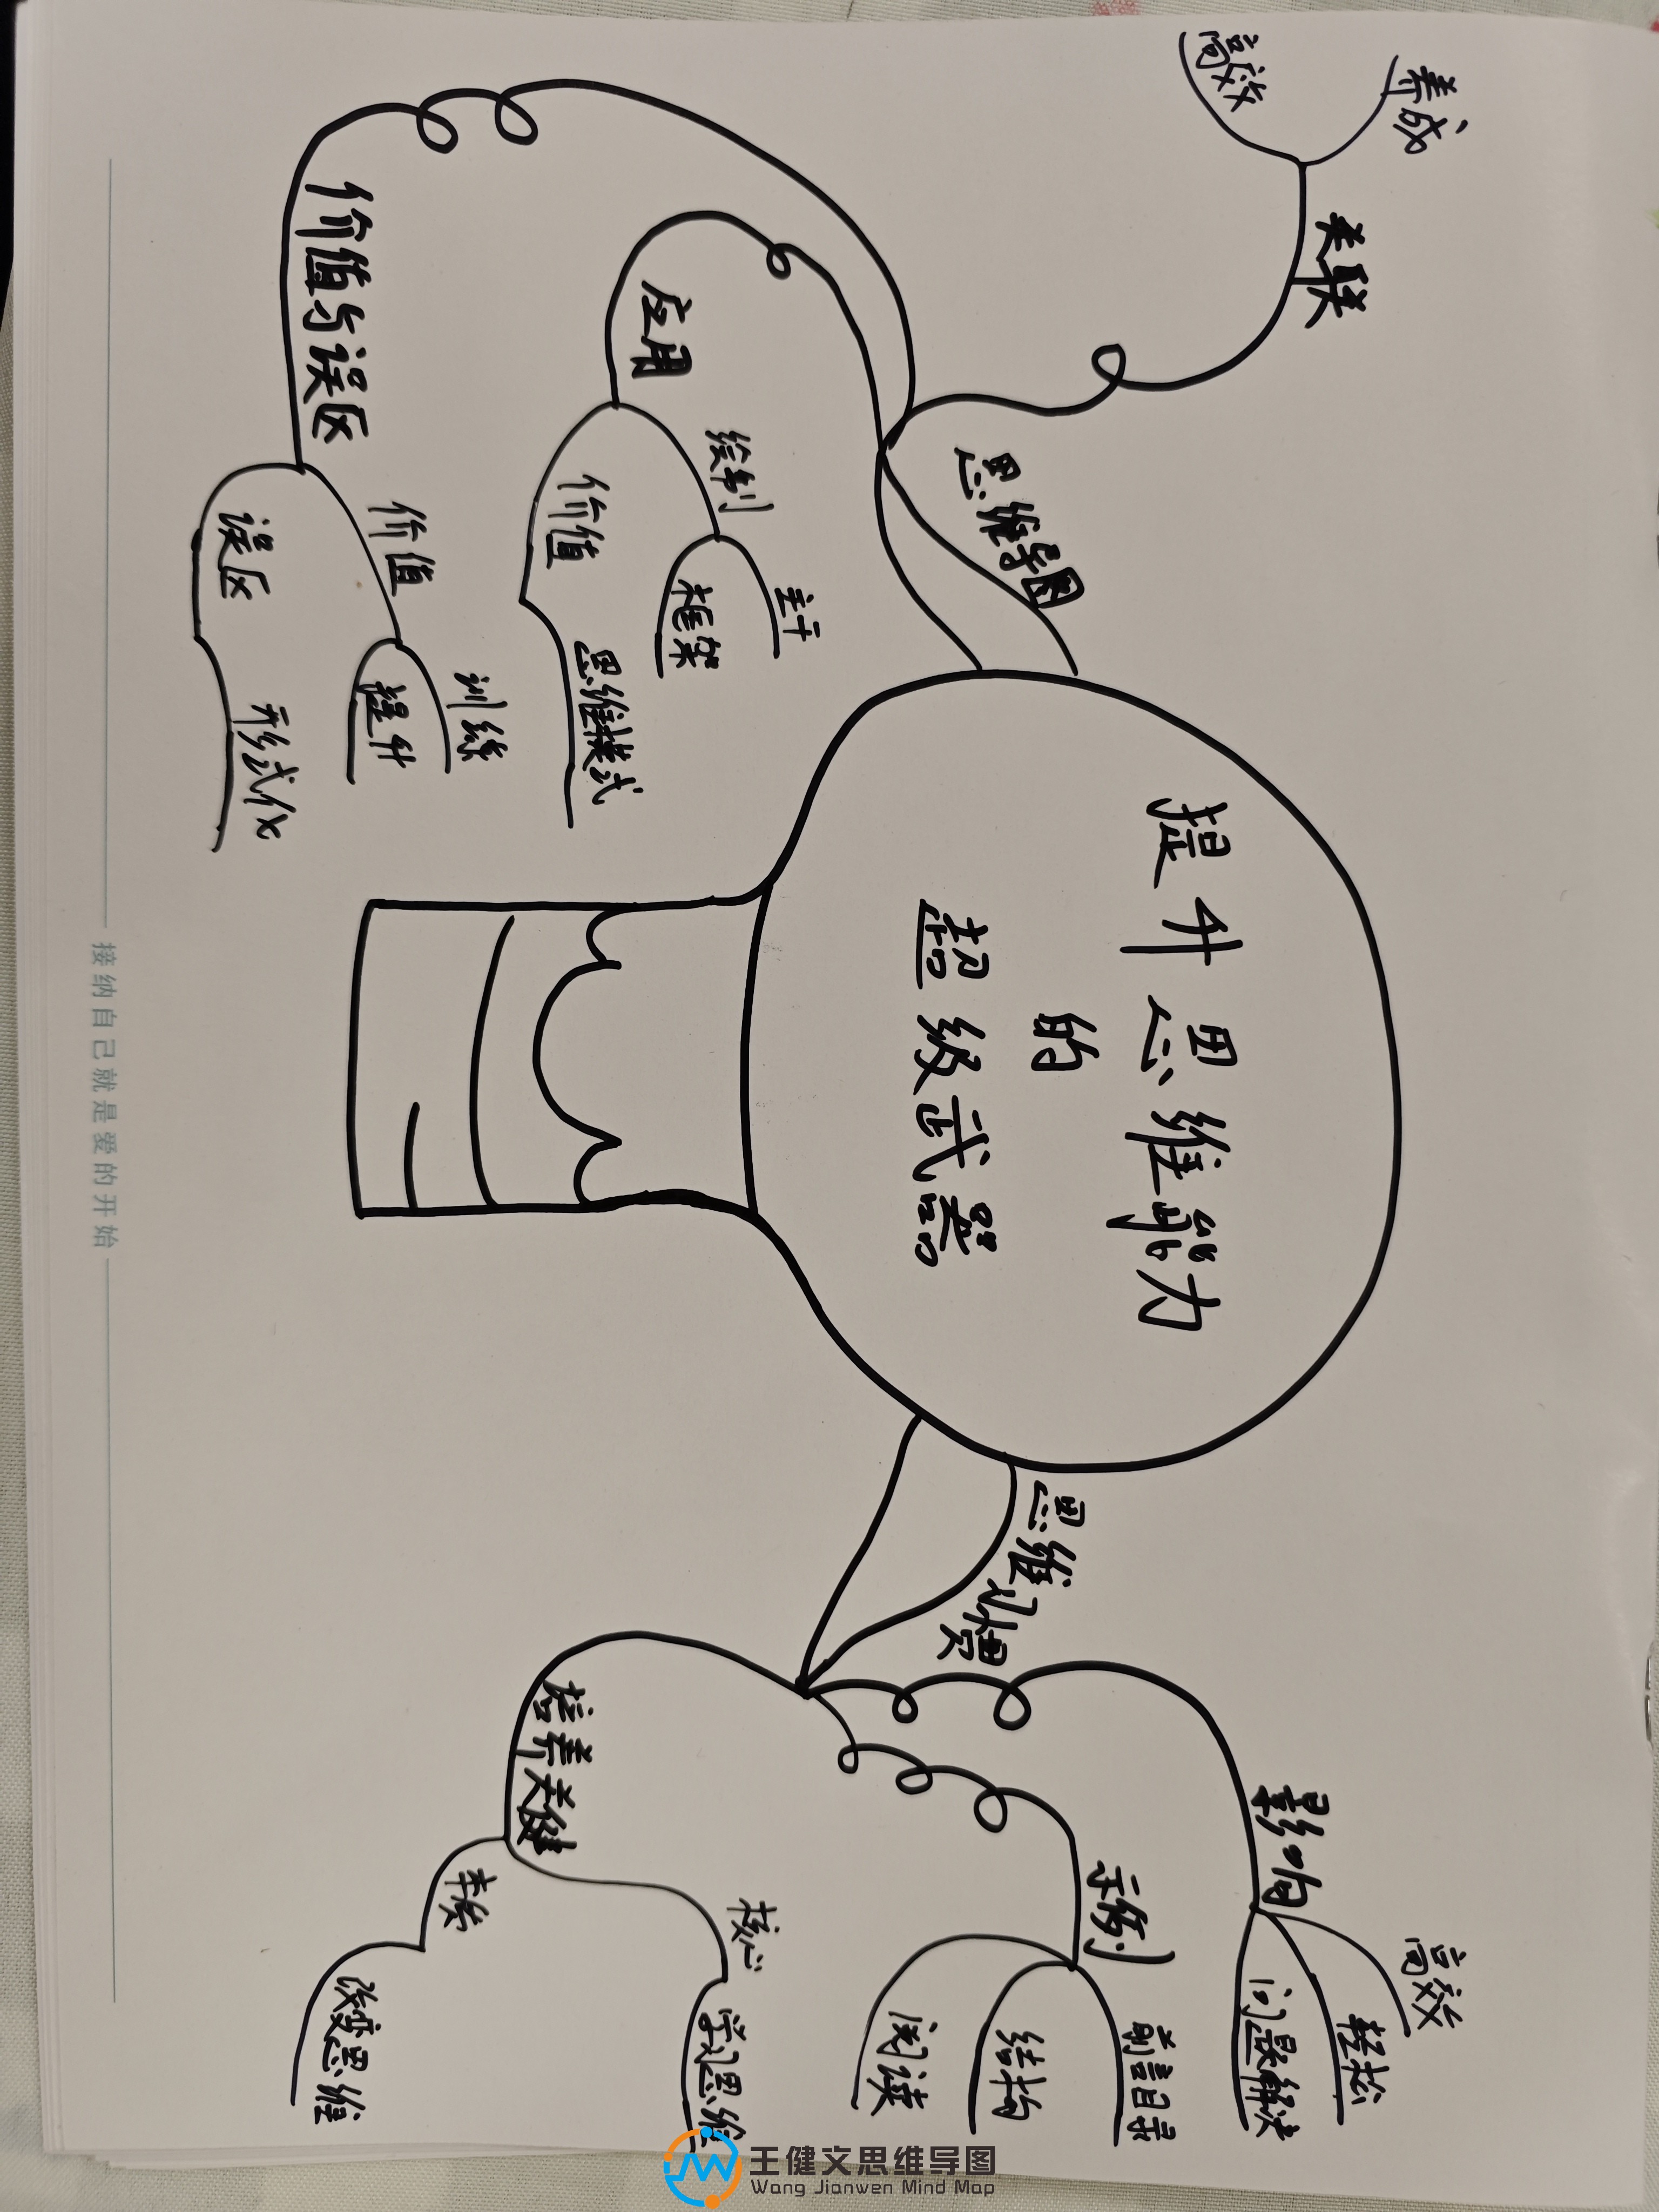 提升思维能力
的
超级武器
思维习惯
影响
高效
轻松
问题解决
示例
前言目录
结构
阅读
培养关键
核心
学习思维
改变思维
思维导图
价值与误区
价值
训练
提升
误区
形式化
应用
绘制
主干
框架
价值
思维模式
关联
养成
高效
接纳自己就是爱的开始
王健文思维导图
Wang Jianwen Mind Map